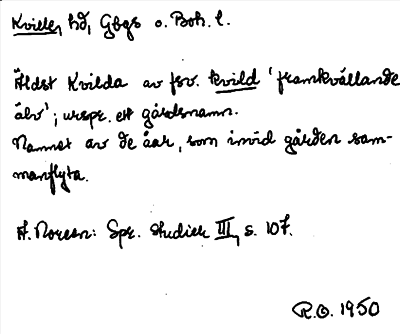 Kville, hd, Gbgs o. Boh. l.
Äldst Kvilda av fsv. kvild 'framkvällande
älv'; urspr. ett gårdsnamn.
Namnet av de åar, som invid gården sam-
manflyta.
A. Noreen: Spr. studier III, s. 107.
R.O. 1950